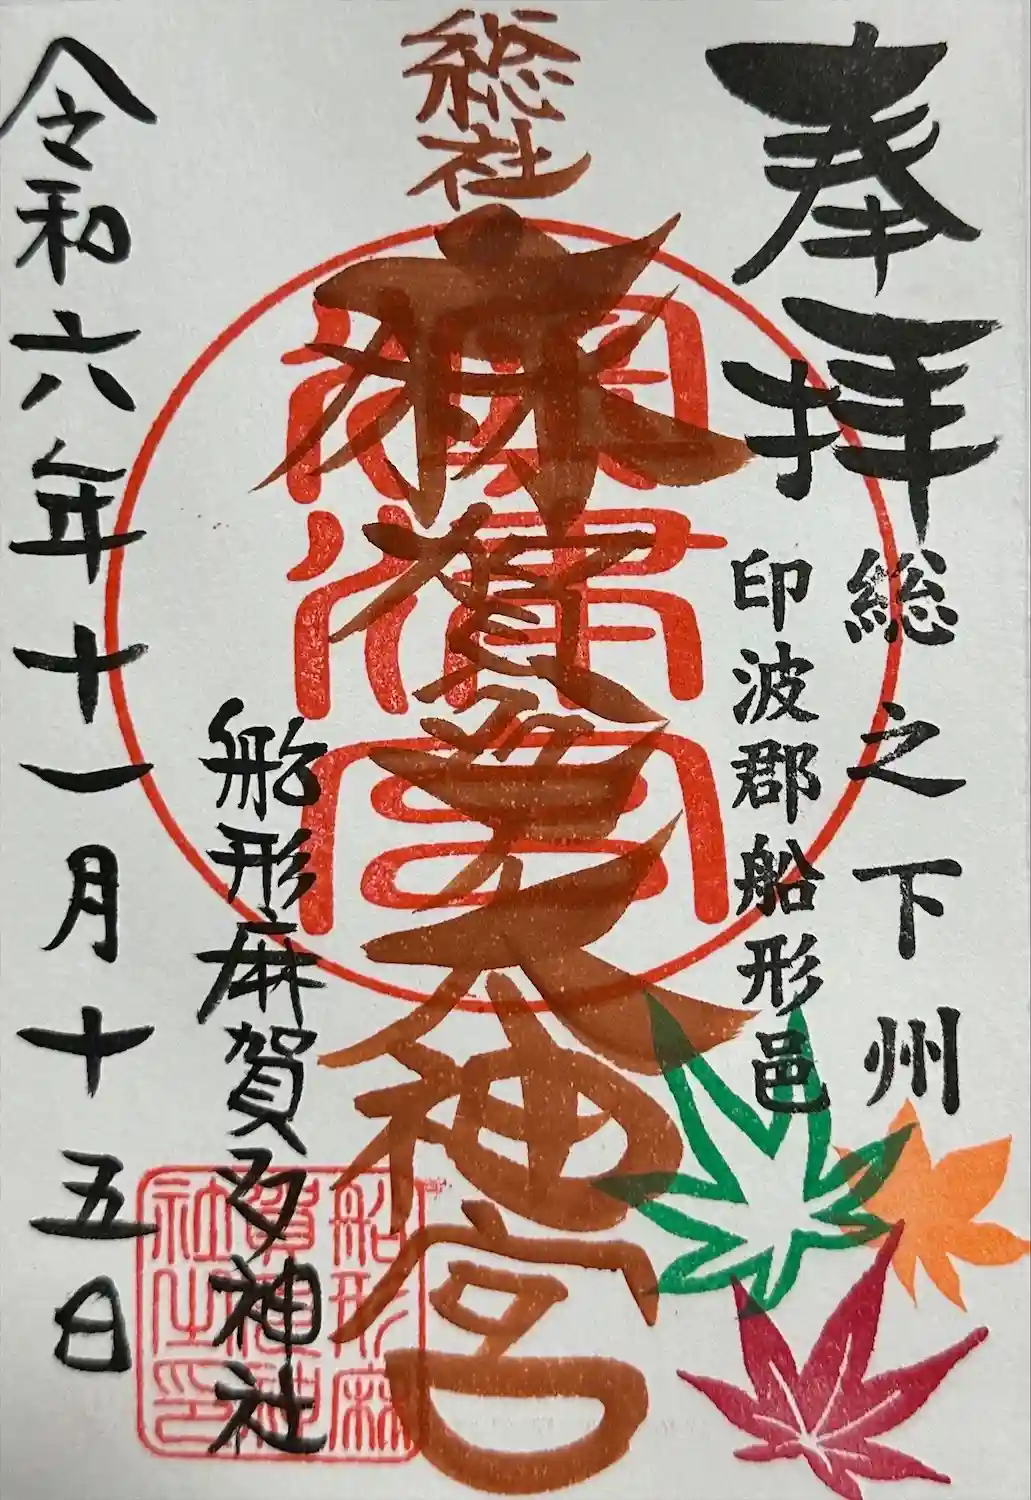 奉拝
総之下州
印波郡船形邑
総社
麻賀多大神宮
船形麻賀多神社
令和六年十一月十五日
船形麻
賀多神
社之印